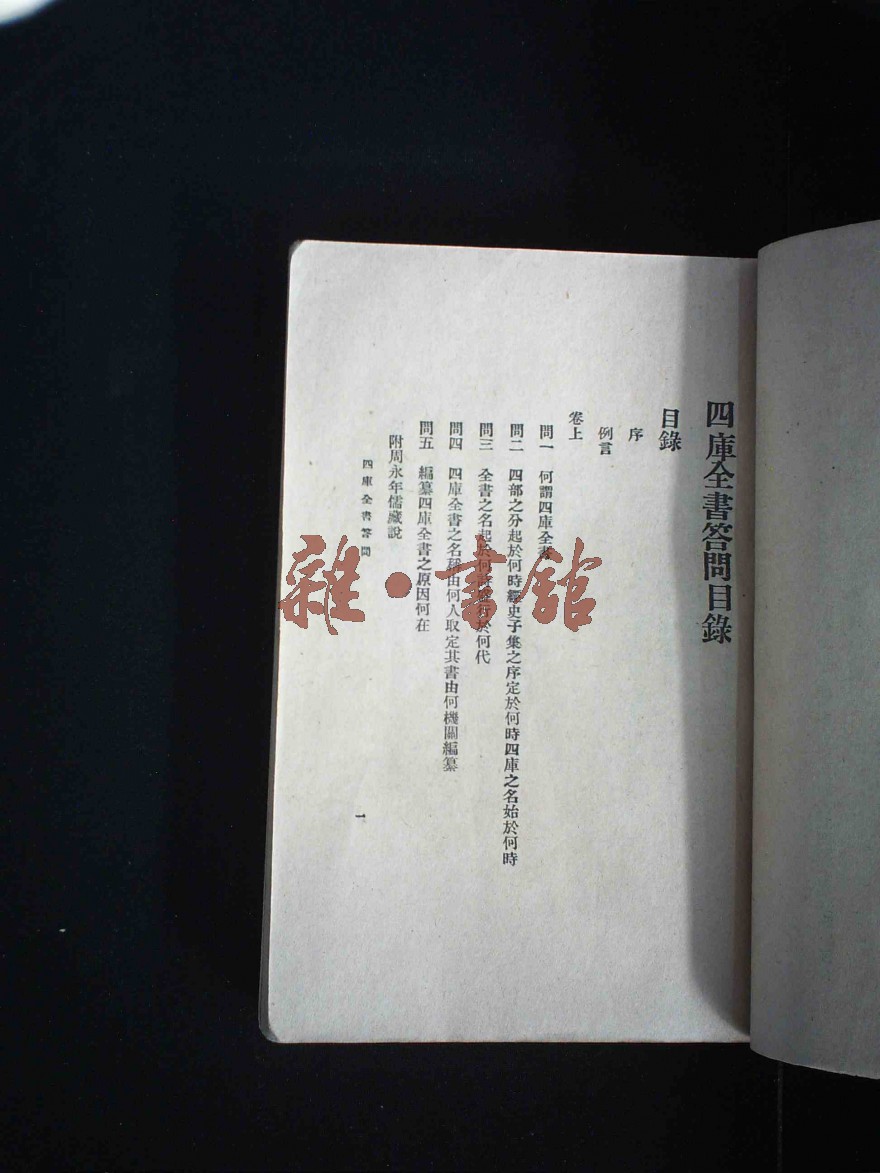 四庫全書答問目錄
目錄
序
例言
卷上
問一 何謂四庫全書
問二 四部之分起於何時經史子集之序定於何時四庫之名始於何時
問三 全書之名起於何時盛行於何代
問四 四庫全書之名稱由何人取定其書由何機關編纂
問五 編纂四庫全書之原因何在
附周永年儒藏說
四庫全書答問
一
雜·書館